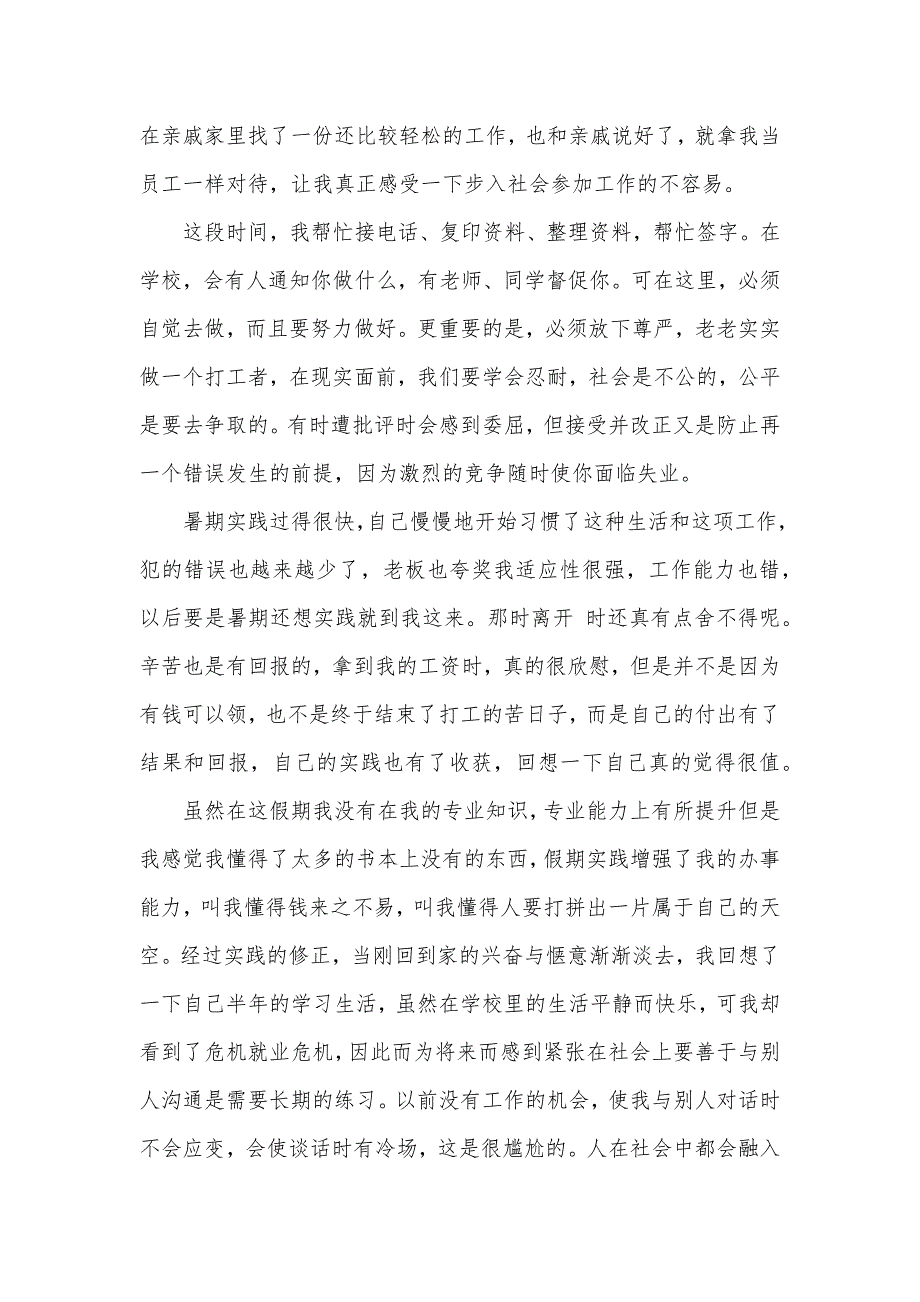 在亲戚家里找了一份还比较轻松的工作，也和亲戚说好了，就拿我当
员工一样对待，让我真正感受一下步入社会参加工作的不容易。
这段时间，我帮忙接电话、复印资料、整理资料，帮忙签字。在
学校，会有人通知你做什么，有老师、同学督促你。可在这里，必须
自觉去做，而且要努力做好。更重要的是，必须放下尊严，老老实实
做一个打工者，在现实面前，我们要学会忍耐，社会是不公的，公平
是要去争取的。有时遭批评时会感到委屈，但接受并改正又是防止再
一个错误发生的前提，因为激烈的竞争随时使你面临失业。
暑期实践过得很快，自己慢慢地开始习惯了这种生活和这项工作，
犯的错误也越来越少了，老板也夸奖我适应性很强，工作能力也错，
以后要是暑期还想实践就到我这来。那时离开 时还真有点舍不得呢。
辛苦也是有回报的，拿到我的工资时，真的很欣慰，但是并不是因为
有钱可以领，也不是终于结束了打工的苦日子，而是自己的付出有了
结果和回报，自己的实践也有了收获，回想一下自己真的觉得很值。
虽然在这假期我没有在我的专业知识，专业能力上有所提升但是
我感觉我懂得了太多的书本上没有的东西，假期实践增强了我的办事
能力，叫我懂得钱来之不易，叫我懂得人要打拼出一片属于自己的天
空。经过实践的修正，当刚回到家的兴奋与惬意渐渐淡去，我回想了
一下自己半年的学习生活，虽然在学校里的生活平静而快乐，可我却
看到了危机就业危机，因此而为将来而感到紧张在社会上要善于与别
人沟通是需要长期的练习。以前没有工作的机会，使我与别人对话时
不会应变，会使谈话时有冷场，这是很尴尬的。人在社会中都会融入